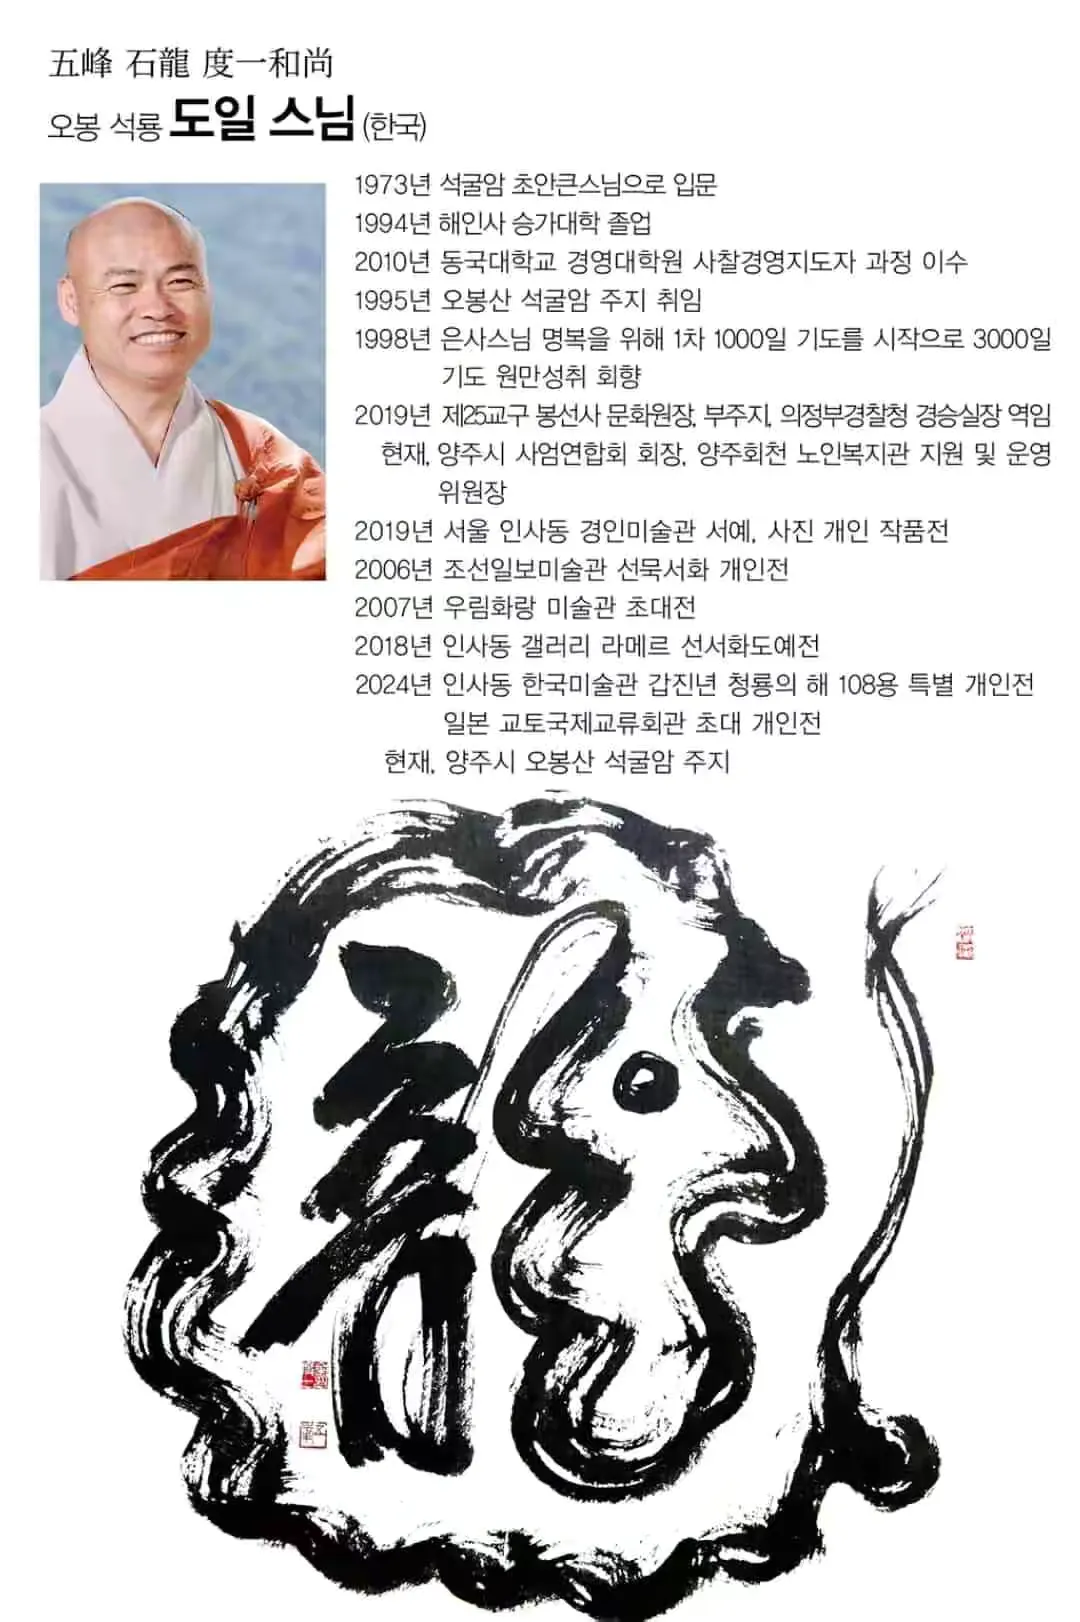 五峰 石龍 度一和尚
오봉 석룡 도일 스님 (한국)
1973년 석굴암 초안큰스님으로 입문
1994년 해인사 승가대학 졸업
2010년 동국대학교 경영대학원 사찰경영지도자 과정 이수
1995년 오봉산 석굴암 주지 취임
1998년 은사스님 명복을 위해 1차 1000일 기도를 시작으로 3000일
기도 원만성취 회향
2019년 제25교구 봉선사 문화원장, 부주지, 의정부경찰청 경승실장 역임
현재, 양주시 사암연합회 회장, 양주회천 노인복지관 지원 및 운영
위원장
2019년 서울 인사동 경인미술관 서예, 사진 개인 작품전
2006년 조선일보미술관 선묵서화 개인전
2007년 우림화랑 미술관 초대전
2018년 인사동 갤러리 라메르 선서화도예전
2024년 인사동 한국미술관 갑진년 청룡의 해 108용 특별 개인전
일본 교토국제교류회관 초대 개인전
현재, 양주시 오봉산 석굴암 주지
龍